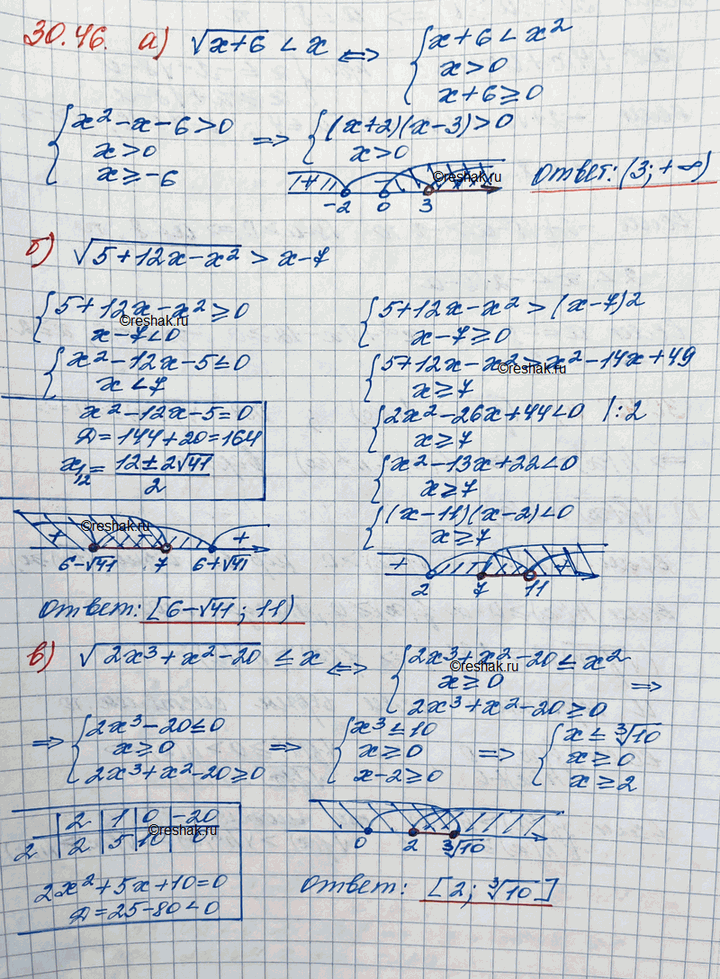 30.46. а) √(x+6) < x ⟺ { x+6 < x²
x > 0
x+6 ≥ 0
{ x²-x-6>0
x>0
x≥-6
=> { (x+2)(x-3)>0
x>0
+ -2 0 3
Ответ: (3; +∞)
б) √(5+12x-x²) > x-7
{ 5+12x-x² ≥ 0
x-7<0
{ x²-12x-5≤0
x<7
x²-12x-5=0
Д=144+20=164
x₁/₂ = (12±2√41)/2
+ - +
6-√41 7 6+√41
{ 5+12x-x² > (x-7)2
x-7≥0
{ 5+12x-x²>x²-14x+49
x≥7
{ 2x²-26x+44<0 |:2
x≥7
{ x²-13x+22<0
x≥7
{ (x-11)(x-2)<0
x≥7
+ +
2 7 11
Ответ: [6-√41; 11)
в) √(2x³+x²-20) ≤ x ⟺ { 2x³+x²-20≤x²
x≥0
2x³+x²-20≥0
=>
=> { 2x³-20≤0
x≥0
2x³+x²-20≥0
=> { x³≤10
x≥0
x-2≥0
=> { x≤∛10
x≥0
x≥2
2 1 0 -20
2 2 5 10 0
2x²+5x+10=0
Д=25-80<0
0 2 ∛10
Ответ: [2; ∛10]
©reshak.ru
©reshak.ru
©reshak.ru
©reshak.ru
©reshak.ru
©reshak.ru